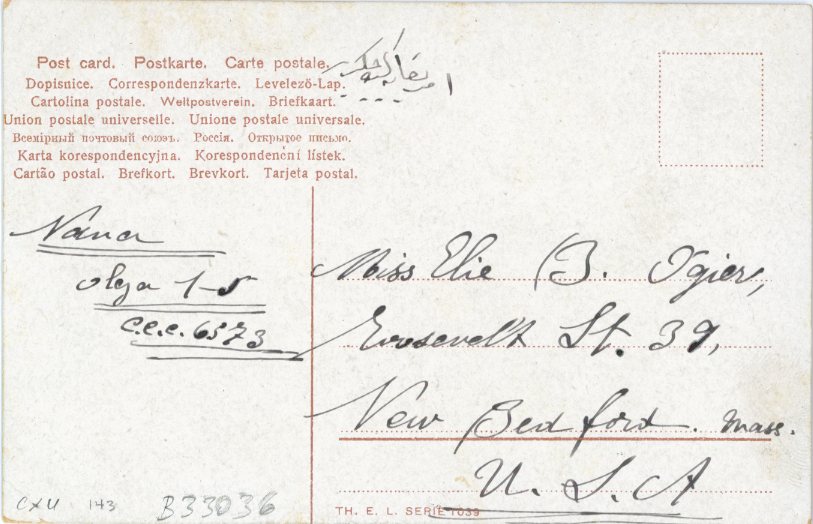 Post card. Postkarte. Carte postale.
Dopisnice. Correspondenzkarte. Levelező-Lap.
Cartolina postale. Weltpostverein. Briefkaart.
Union postale universelle. Unione postale universale.
Всемірный почтовый союзъ. Россія. Открытое письмо.
Karta korespondencyjna. Korespondenční lístek.
Cartão postal. Brefkort. Brevkort. Tarjeta postal.
Olga 1-5
c.c.c. 6573
Miss Elie B. Ogier,
Roosevelt St. 39,
New Bedford. Mass.
U. S. A
CXU 143 B33036
TH. E. L. SERIE 1039